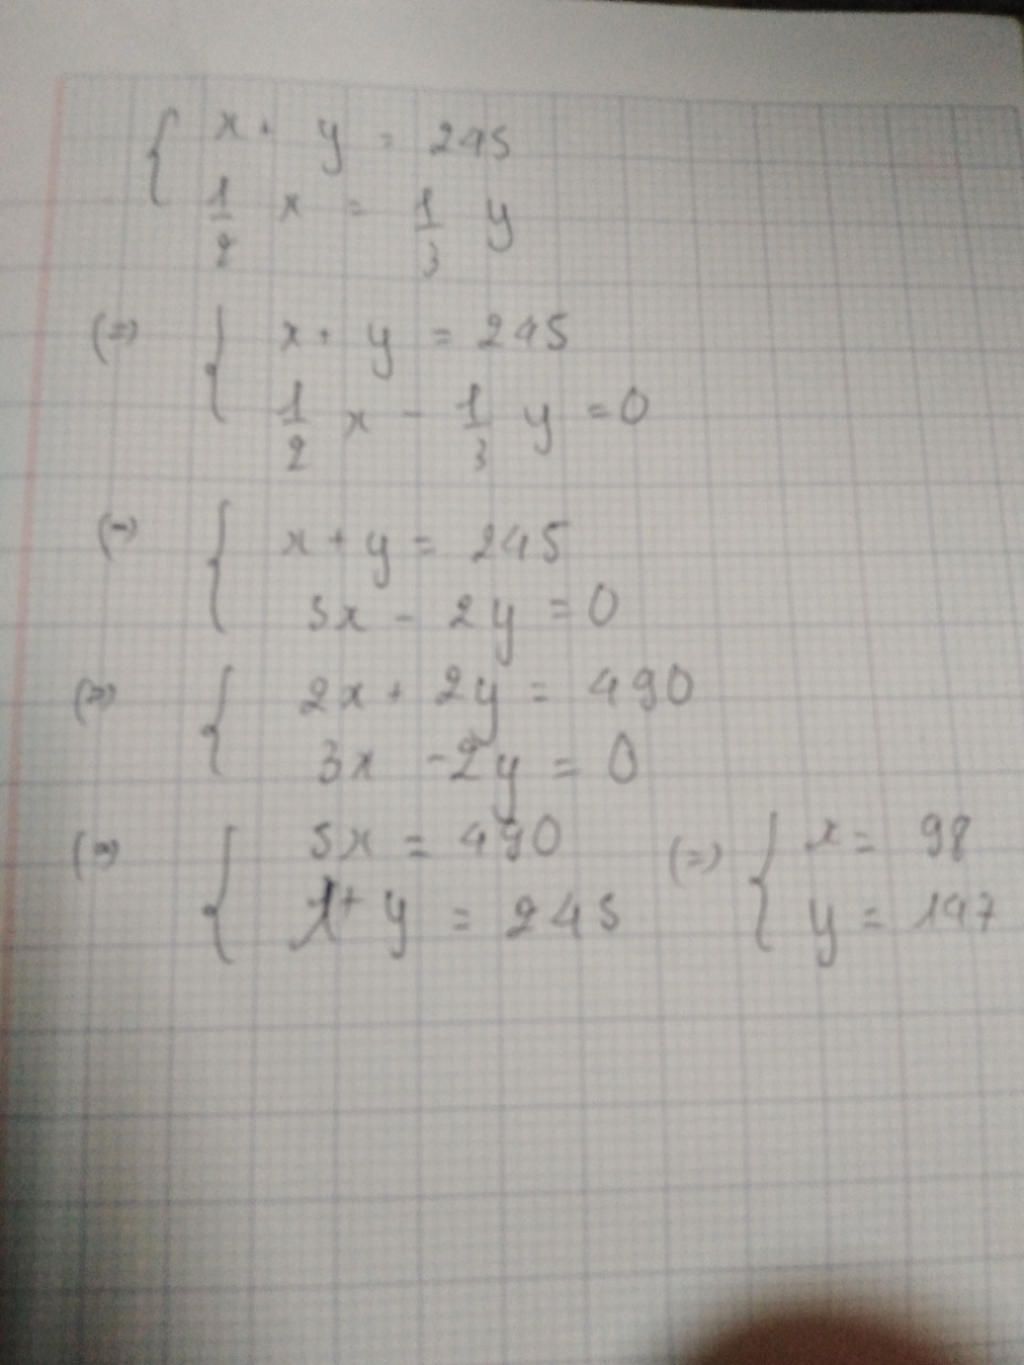 { x + y = 245
1/2 x = 1/3 y
(=) { x + y = 245
1/2 x - 1/3 y = 0
(=) { x + y = 245
3x - 2y = 0
(=) { 2x + 2y = 490
3x - 2y = 0
(=) { 5x = 490 (=) { x = 98
x + y = 245 y = 147